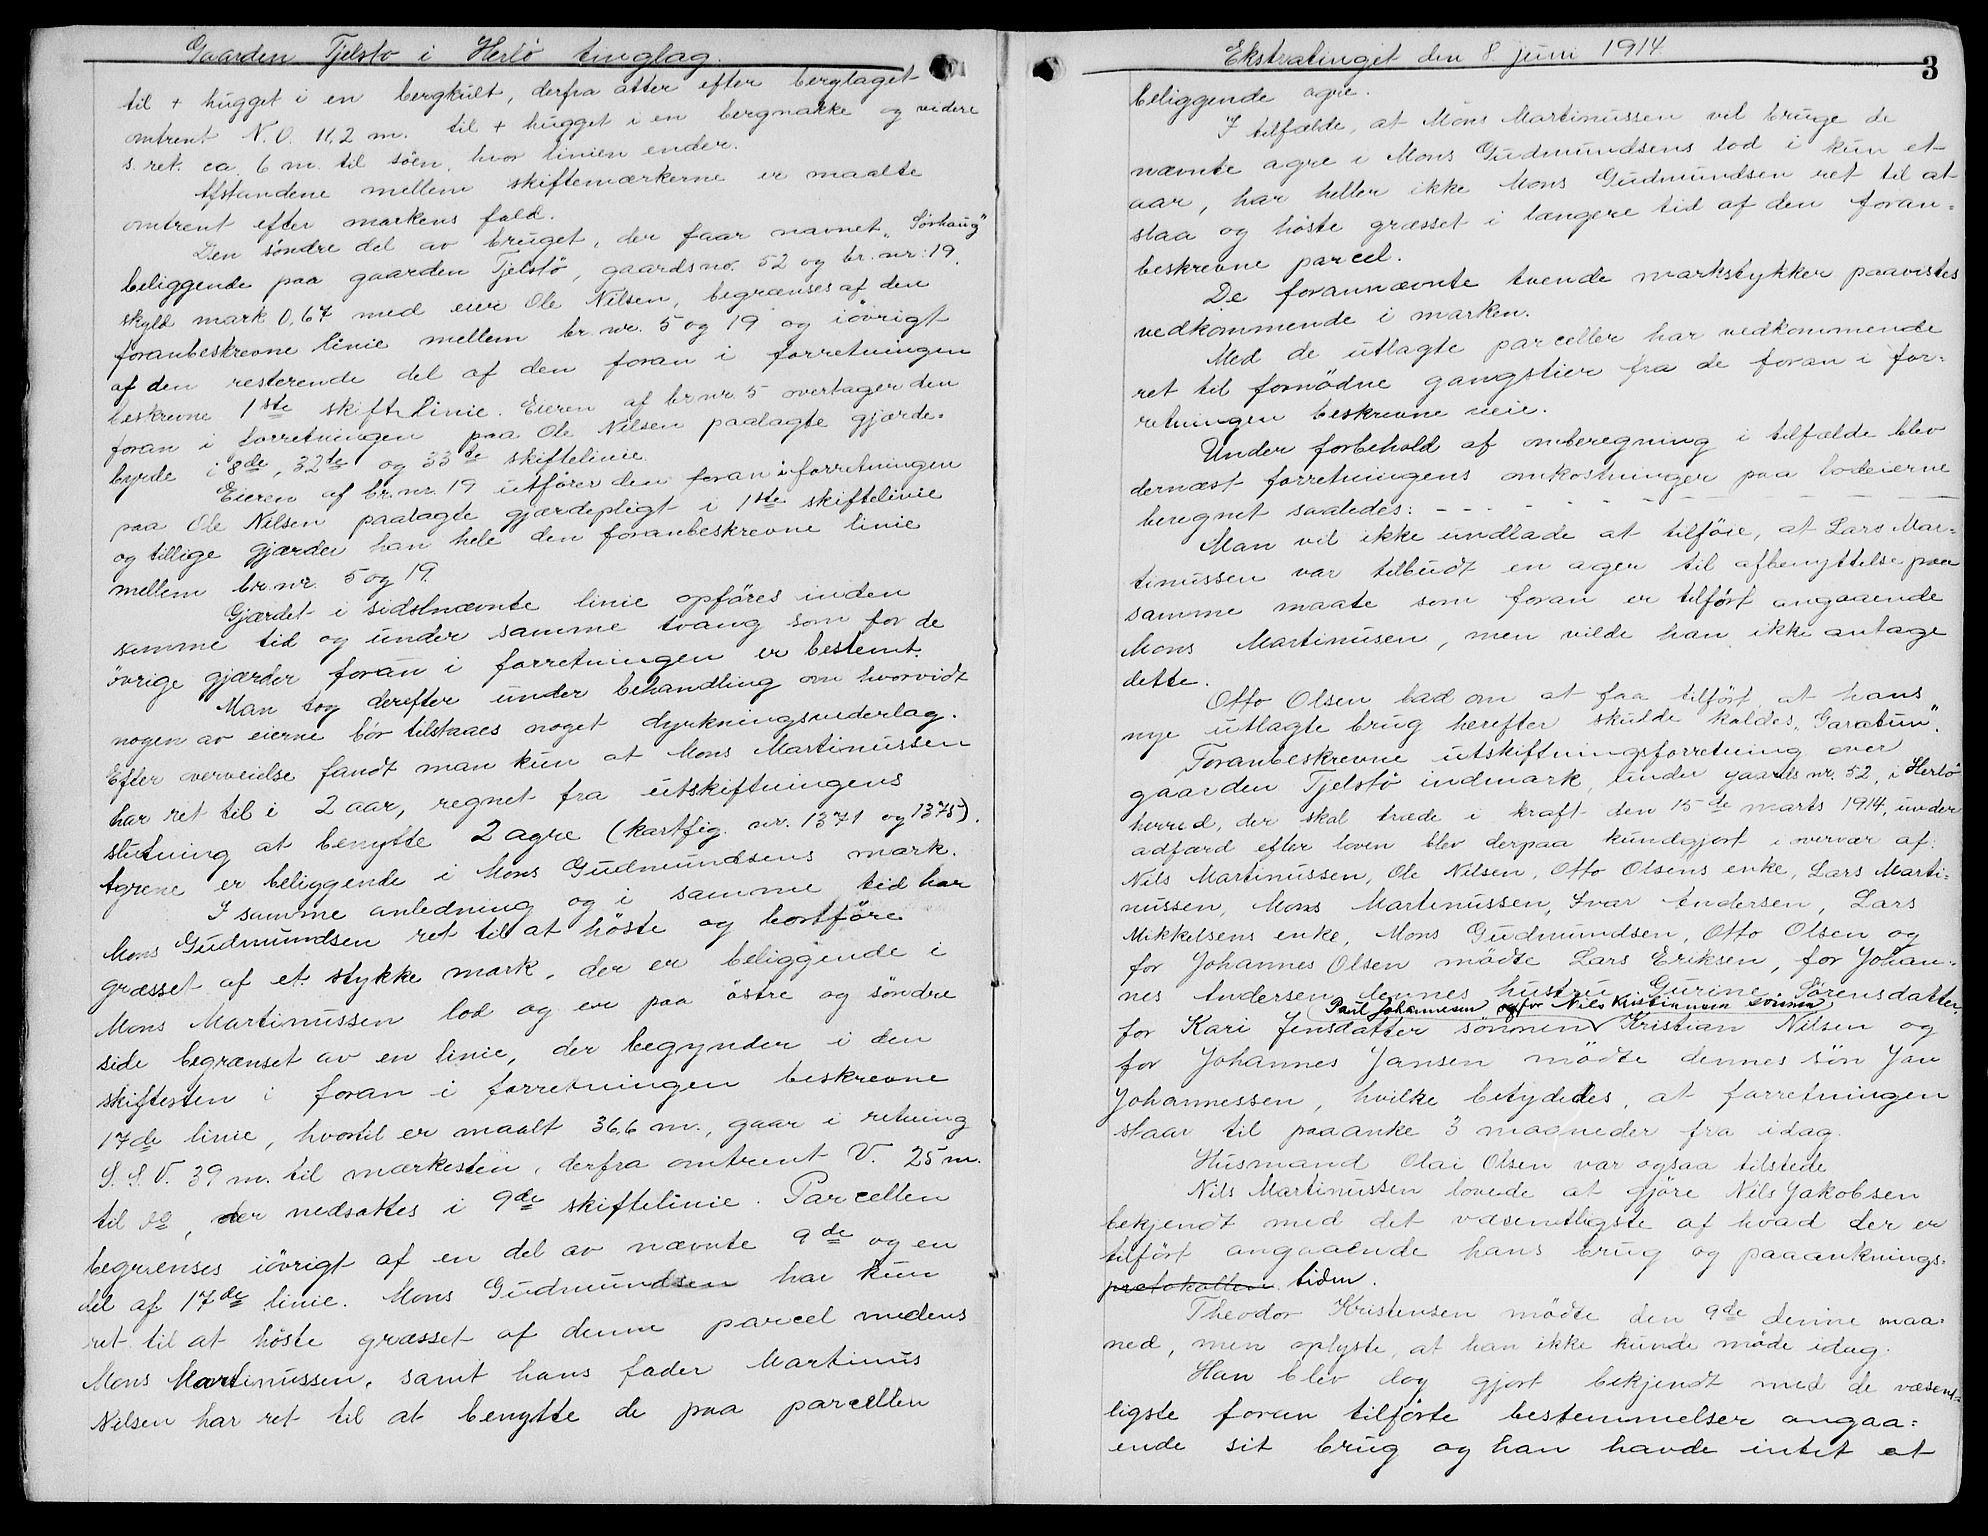 Gaarden Tjelstø i Herlø tinglag.
til + hugget i en bergkult, derfra atter efter berglaget
omtrent N.O. 11,2 m. til + hugget i en bergnakke og videre
s. ret. ca. 6 m. til søen, hvor linien ender.
Afstandene mellem skiftemærkerne er maalte
omtrent efter markens fald.
Den söndre del av bruget, der faar navnet "Sörhaug"
beliggende paa gaarden Tjelstö, gaardsno. 52 og br. nr. 19,
skyld mark 0,67 med eier Ole Nilsen, begrænses af den
foranbeskrevne linie mellem br. nr. 5 og 19 og iövrigt
af den resterende del af den foran i forretningen
beskrevne 1ste skiftelinie. Eieren af br nr. 5 overtager den
foran i forretningen paa Ole Nilsen paalagte gjærde-
byrde i 8de, 32te og 33te skiftelinie.
Eieren af br. nr. 19 utförer den foran i forretningen
paa Ole Nilsen paalagte gjærdepligt i 1ste skiftelinie
og tillige gjærder han hele den foranbeskrevne linie
mellem br. nr. 5 og 19.
Gjærdet i sidstnævnte linie opföres inden
samme tid og under samme tvang som for de
övrige gjærder foran i forretningen er bestemt.
Man tog derefter under behandling om hvorvidt
nogen av eierne bör tilstaaes noget dyrkningsvederlag.
Efter overveielse fandt man kun at Mons Martinussen
har ret til i 2 aar, regnet fra utskiftningens
slutning at benytte 2 agre (kartfig. nr. 1371 og 1375).
Agrene er beliggende i Mons Gudmundsens mark.
I samme anledning og i samme tid har
Mons Gudmundsen ret til at höste og bortföre
græsset af et stykke mark, der er beliggende i
Mons Martinussen lod og er paa östre og söndre
side begrænset av en linie, der begynder i den
skiftesten i foran i forretningen beskrevne
17de linie, hvortil er maalt 36,6 m., gaar i retning
S.S.V. 39 m. til mærkesten, derfra omtrent V. 25 m.
til do, der nedsattes i 9de skiftelinie. Parcellen
begrænses iövrigt af en del av nævnte 9de og en
del af 17de linie. Mons Gudmundsen har kun
ret til at höste græsset af denne parcel medens
Mons Martinussen, samt hans fader Martinus
Nilsen har ret til at benytte de paa parcellen
Ekstratinget den 8 juni 1914
3
beliggende agre.
I tilfælde, at Mons Martinussen vil bruge de
nævnte agre i Mons Gudmundsens lod i kun et
aar, har heller ikke Mons Gudmundsen ret til at
slaa og höste græsset i længere tid af den foran-
beskrevne parcel.
De forannævnte tvende markstykker paavistes
vedkommende i marken.
Med de utlagte parceller har vedkommende
ret til fornödne gangstier fra de foran i for-
retningen beskrevne veie.
Under forbehold af omberegning i tilfælde blev
dernæst forretningens omkostninger paa lodeierne
beregnet saaledes: - - - - - - - - -
Man vil ikke undlade at tilföie, at Lars Mar-
tinussen var tilbudt en ager til afbenyttelse paa
samme maate som foran er tilfört angaaende
Mons Martinusen, men vilde han ikke antage
dette.
Otto Olsen bad om at faa tilfört at hans
nye utlagte brug herefter skulde kaldes "Garatun".
Foranbeskrevne utskiftningsforretning over
gaarden Tjelstö indmark, under gaards nr. 52, i Herlö
herred, der skal træde i kraft den 15de marts 1914, under
adfærd efter loven blev derpaa kundgjort i overvær af:
Nils Martinussen, Ole Nilsen, Otto Olsens enke, Lars Marti-
nussen, Mons Martinussen, Ivar Andersen, Lars
Mikkelsens enke, Mons Gudmundsen, Otto Olsen og
for Johannes Olsen mödte Lars Eriksen, for Johan-
nes Andersen dennes hustru Gurine Sörensdatter,
Paul Johannesen og for Nils Kristiansen sönnen
for Kari Jensdatter sönnen Kristian Nilsen og
for Johannes Jansen mödte dennes sön Jan
Johannessen, hvilke betydedes, at forretningen
staar til paaanke 3 maaneder fra idag.
Husmand Olai Olsen var ogsaa tilstede
Nils Martinussen lovede at gjöre Nils Jakobsen
bekjendt med det væsentligste af hvad der er
tilfört angaaende hans brug og paaanknings-
protokollen tiden.
Theodor Kristensen mödte den 9de denne maa-
ned, men oplyste, at han ikke kunde möde idag.
Han blev dog gjort bekjendt med de væsent-
ligste foran tilförte bestemmelser angaa-
ende sit brug og han havde intet at